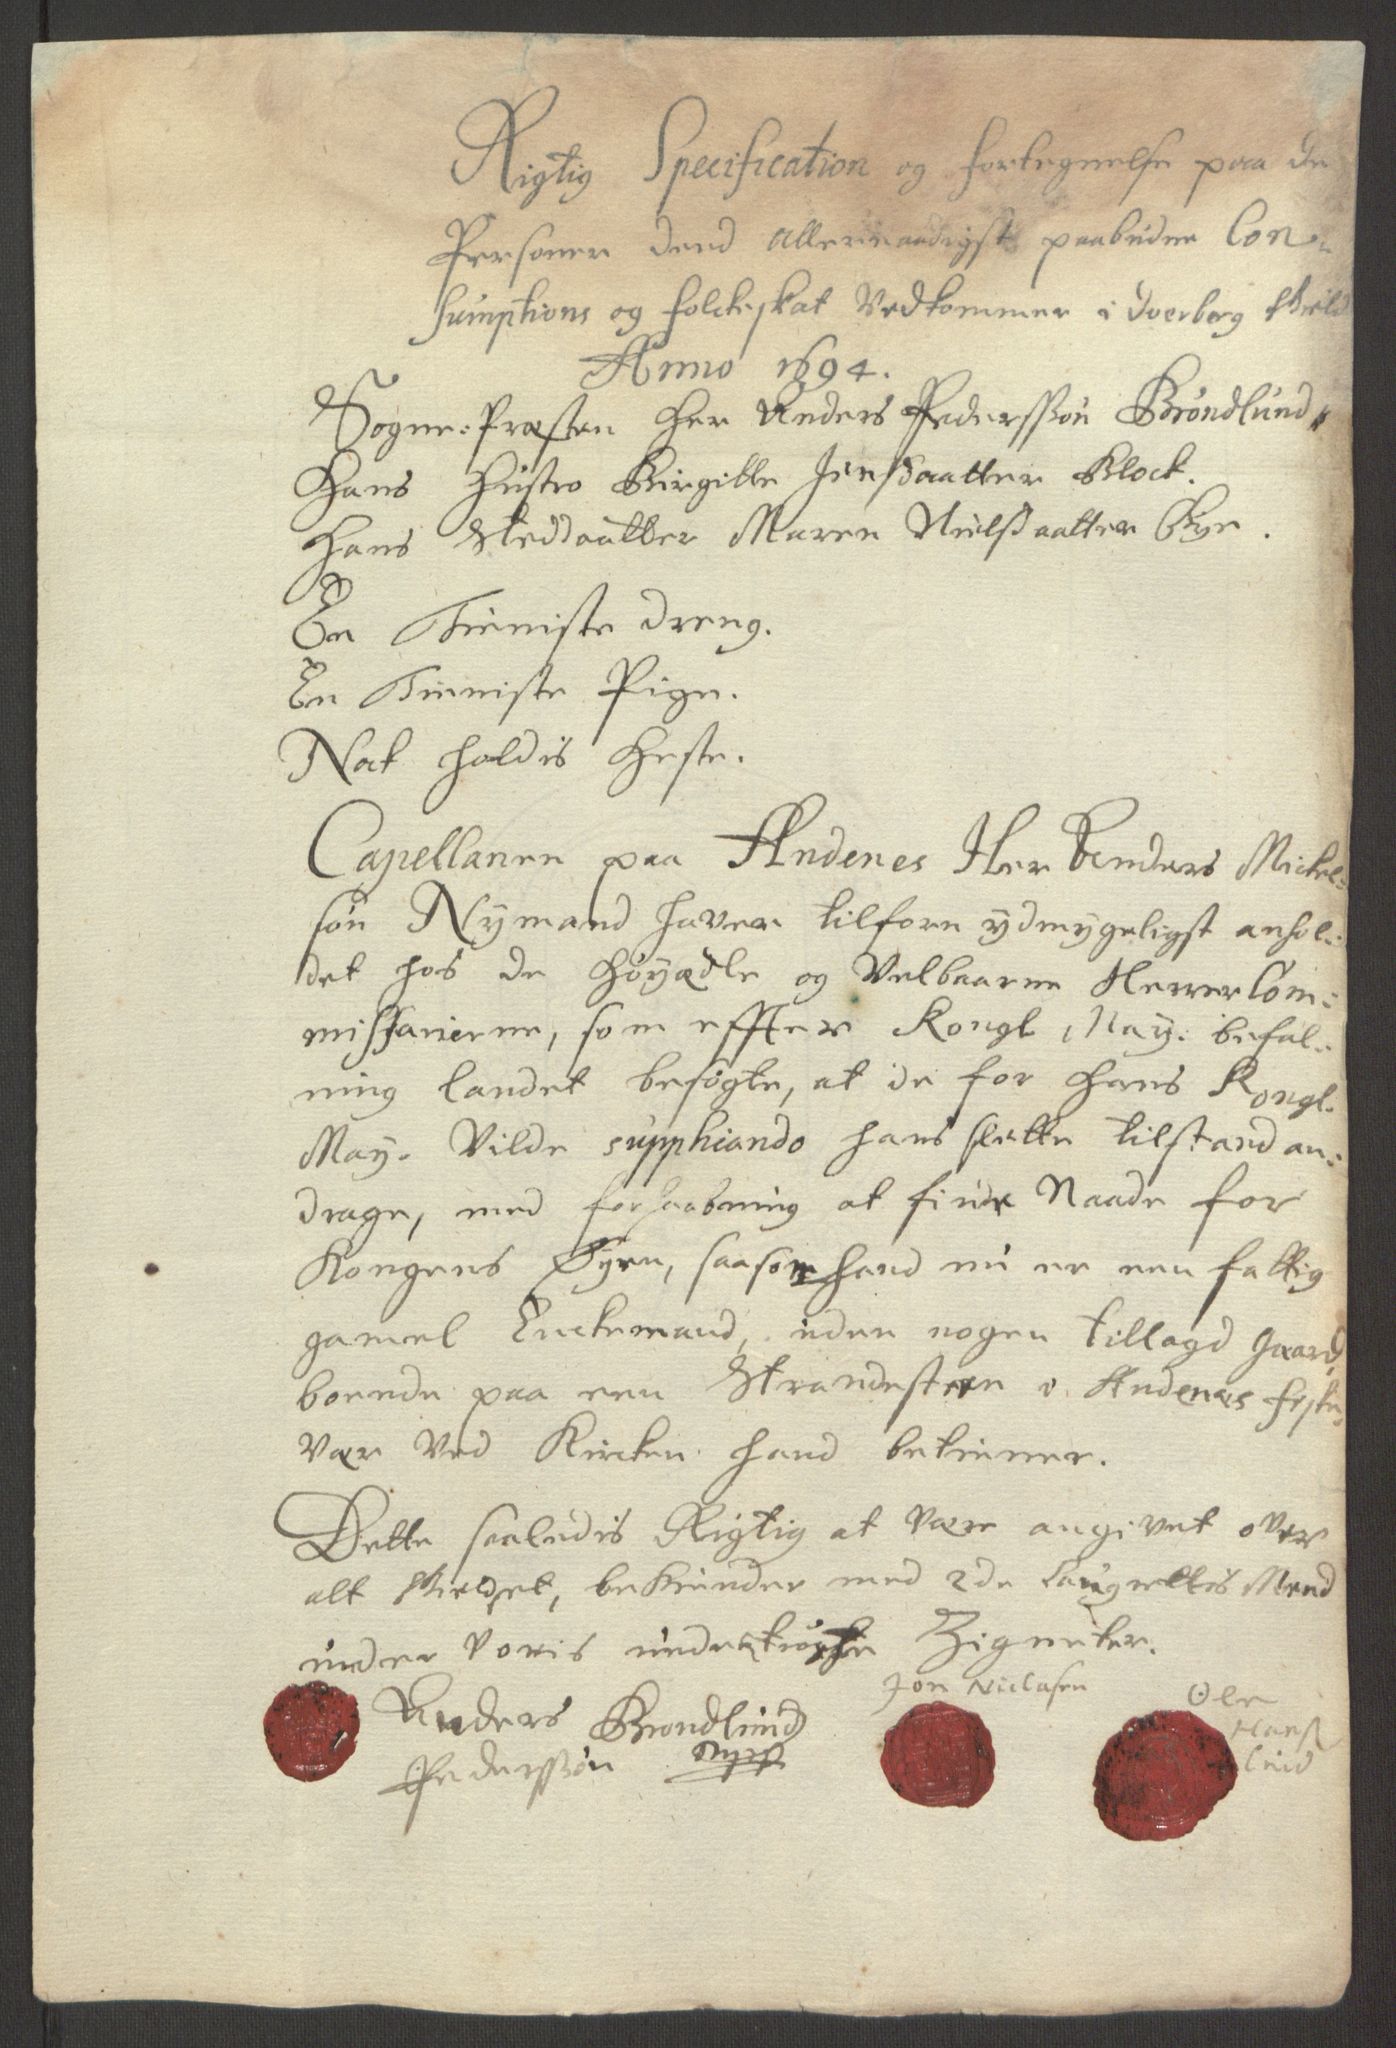 Rigtig Specification og fortegnelse paa de
Personer dend allernaadigst paabudne Con-
sumptions og folcke skat vedkommer i Dverberg Gield
Anno 1694.
Sogne-Præsten Her Anders Pedersßøn Brøndlund,
Hans Hustro Birgitte Jensdaatter Block.
Hans Steddaatter Maren Nielsdaatter Gye.
En Tieniste dreng.
En Tieniste Pige.
Nat holdis Heste.
Capellanen paa Andenes Her Anders Mickel-
søn Nymand haver tilforn ydmygeligst anhol-
det hos de Høyædle og Velbaarne Herrer Com-
missarierne, som effter Kongl. May. befal-
ning landet besøgte, at de for Hans Kongl.
May. vilde suppliando hans slette tilstand an-
drage, med forhaabning at finde Naade for
Kongens Øyen, saasom hand nu er een fattig
gamel Enckemand, uden nogen tillagd gaard,
boende paa een Strandesteen i Andenæs fiske-
vær ved Kircken hand betiener.
Dette saaledis Rigtig at være angivet over
alt Gieldet, bekiender med 2de Laugrettis Mend
under voris undertrøgte Zigneter.
Jon Niclasen
Ole
Anders Brøndlund
Hanß
Pedersßøn
lund